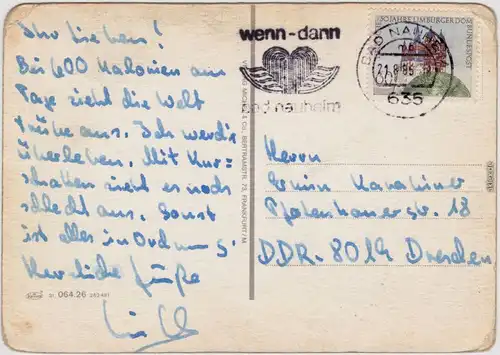 Ihr Lieben!
Bei 600 Kalorien am
Tage sieht die Welt
trübe aus. Ich werd's
überleben. Mit Kur-
schatten sieht es noch
schlecht aus. Sonst
ist alles in Ordnung
Herzliche Grüße
064.26
wenn-dann
bad nauheim
MICHEL & CO., BERTRAMSTR. 73, FRANKFURT/M.
JAHRE LIMBURGER DOM
BUNDESPOST
BAD NAUHEIM
21.8.85
635
Herrn
Pfotenhauerstr. 18
DDR-8019 Dresden